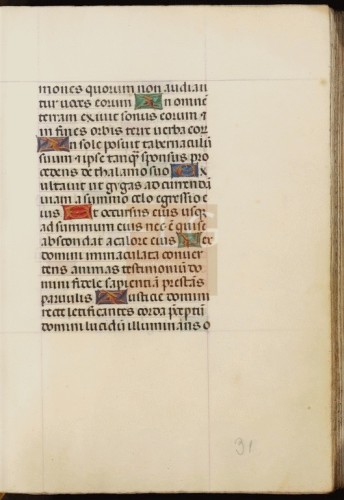 mones quorum non audian
tur voces eorum In omnē
terram exivit sonus eorum et
in fines orbis terre verba eor
In sole posuit tabernaculū
suum et ipse tanq̄ sponsus pro
cedens de thalamo suo Ex
ultavit ut gygas ad currendā
viam a summo celo egressio e
ius Et occursus eius usq̄
ad summum eius nec ē qui se
abscondat a calore eius Lex
domini immaculata conver
tens animas testimoniū do
mini fidele sapientiā prestās
parvulis Iusticie domini
recte letificantes corda p̄ceptū
domini lucidū illuminans o
31